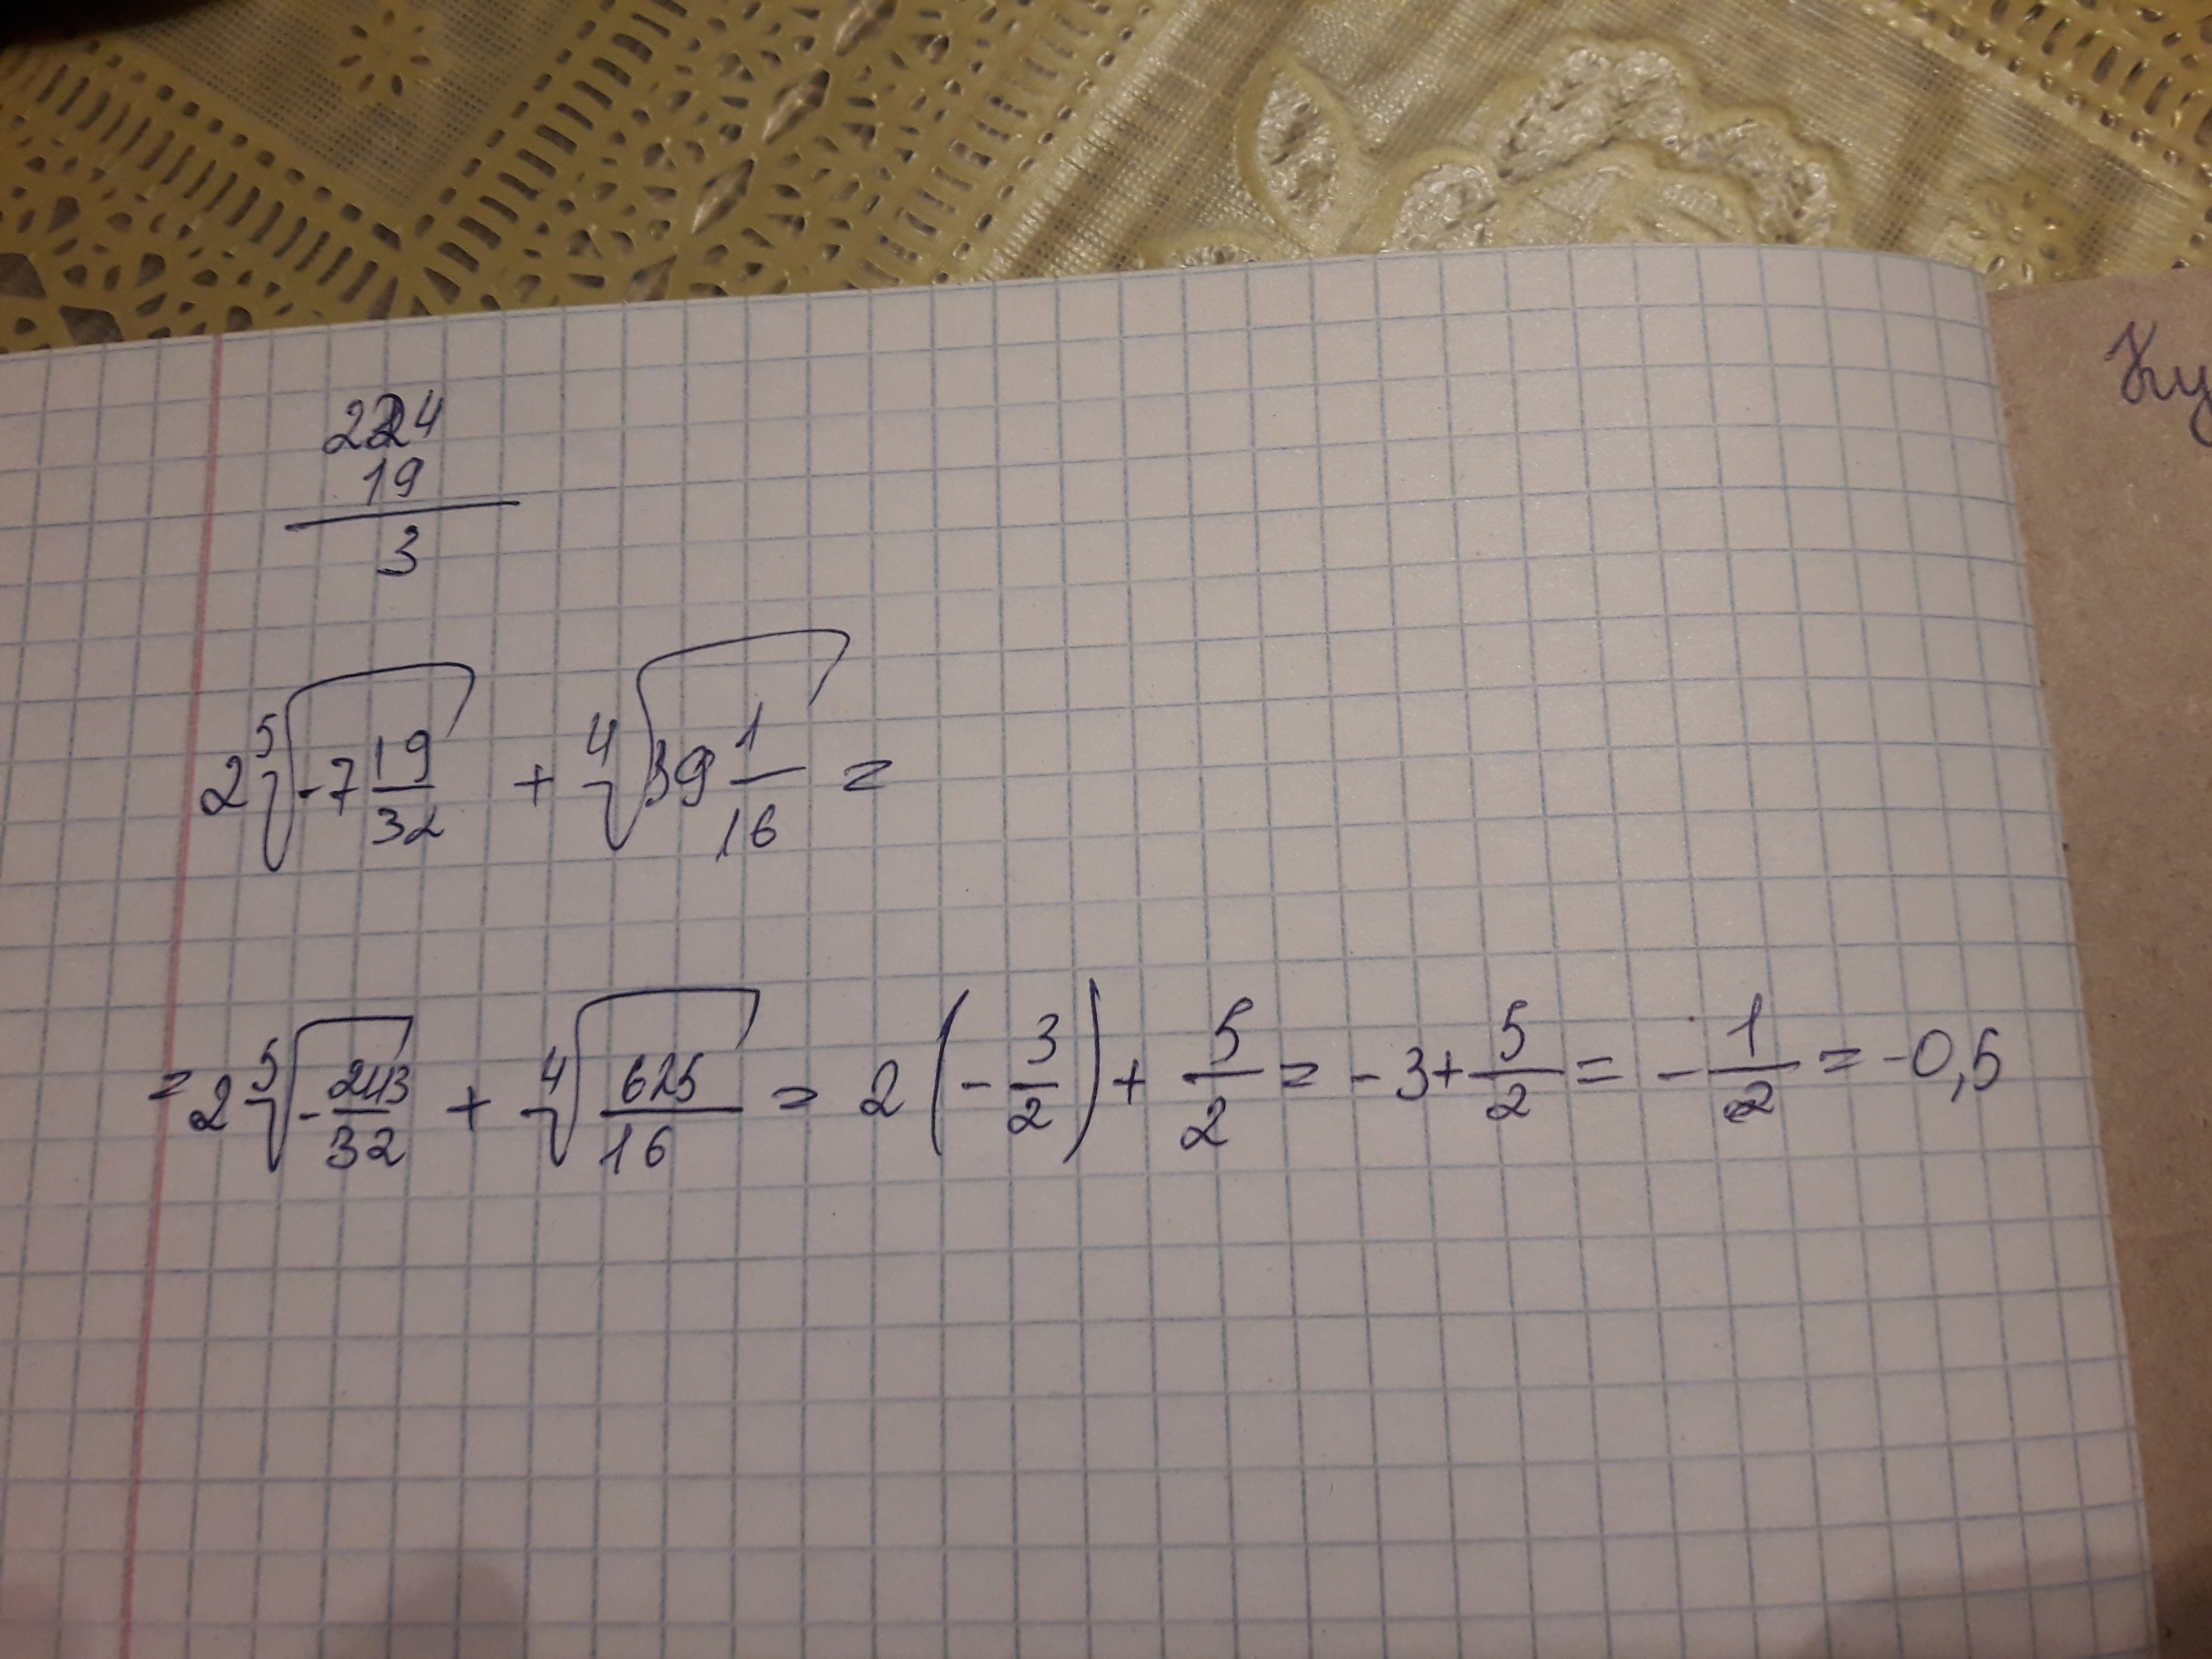 224
19
3
2 ⁵√(-7 19/32) + ⁴√(39 1/16) =
= 2 ⁵√(-243/32) + ⁴√(625/16) = 2(-3/2) + 5/2 = -3 + 5/2 = -1/2 = -0,5
Ку